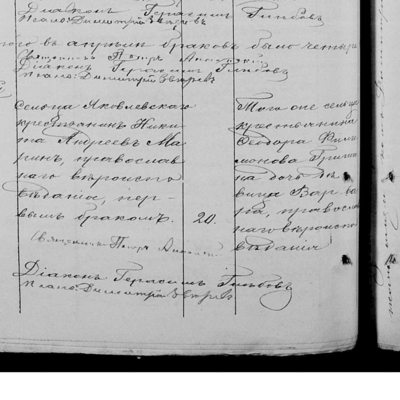 Діаконъ Герасимъ Глѣбовъ
Псало: Димитрій Звѣревъ
въ апрѣлѣ браковъ было четыре
Священникъ Петръ
Діаконъ Герасимъ Глѣбовъ
Псало: Димитрій Звѣревъ
Сельца Яковлевскаго
крестьянинъ Ники
та Андреевъ Ма
ринъ, православ
наго вѣроиспо
вѣданія, пер-
вымъ бракомъ.
20.
Того же сельца
крестьянина
Ѳеодора Фили
монова
на дочь дѣ
вица Варва
ра, правосла
наго вѣроиспо
вѣданія
Священникъ Петръ
Діаконъ Герасимъ Глѣбовъ
Псало: Димитрій Звѣревъ